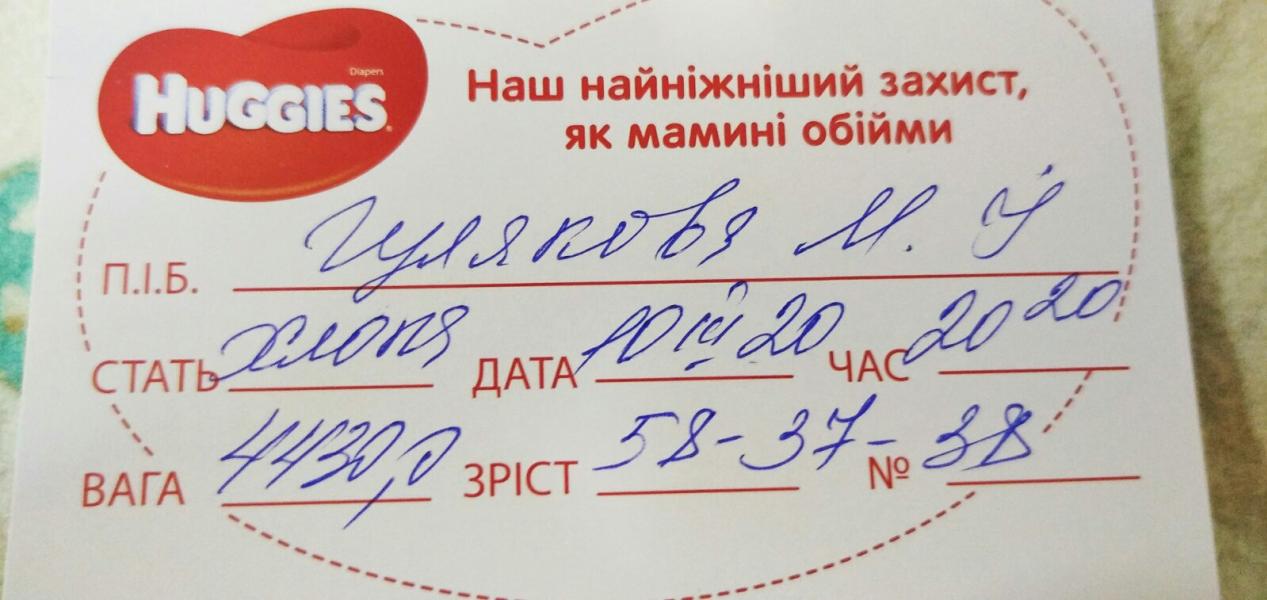 Diapers
HUGGIES
Наш найніжніший захист,
як мамині обійми
П.І.Б. Гулякова М. І
СТАТЬ хлопя ДАТА 10 ІІІ 20 ЧАС 20 20
ВАГА 4430,0 ЗРІСТ 58-37- № 38